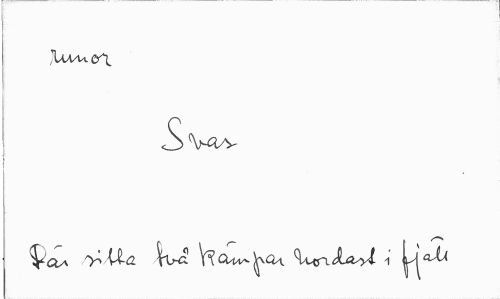 runor
Svar
Där sitta två kämpar nordast i fjäll